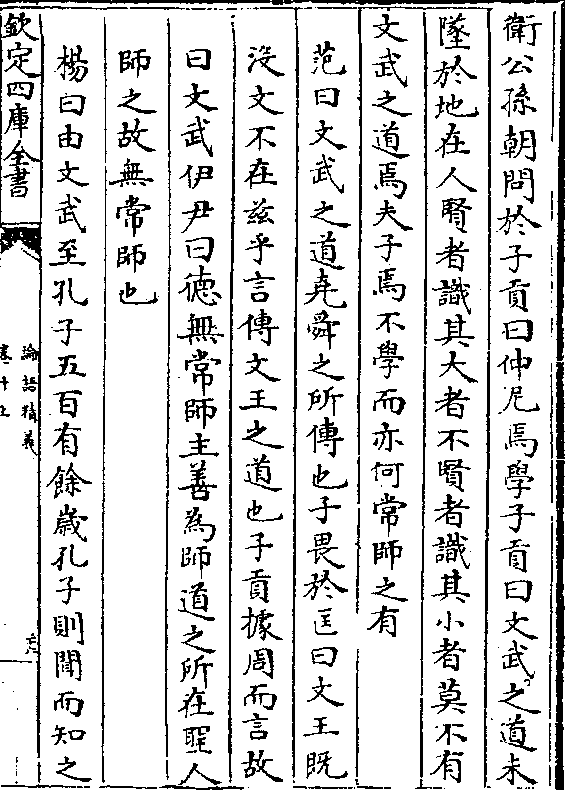 衛公孫朝問於子貢曰仲尼焉學子貢曰文武之道未
墜於地在人賢者識其大者不賢者識其小者莫不有
文武之道焉夫子焉不學而亦何常師之有
范曰文武之道堯舜之所傳也子畏於匡曰文王既
没文不在兹乎言傳文王之道也子貢據周而言故
曰文武伊尹曰德無常師主善為師道之所在聖人
師之故無常師也
楊曰由文武至孔子五百有餘歲孔子則聞而知之
欽定四庫全書
論語精義